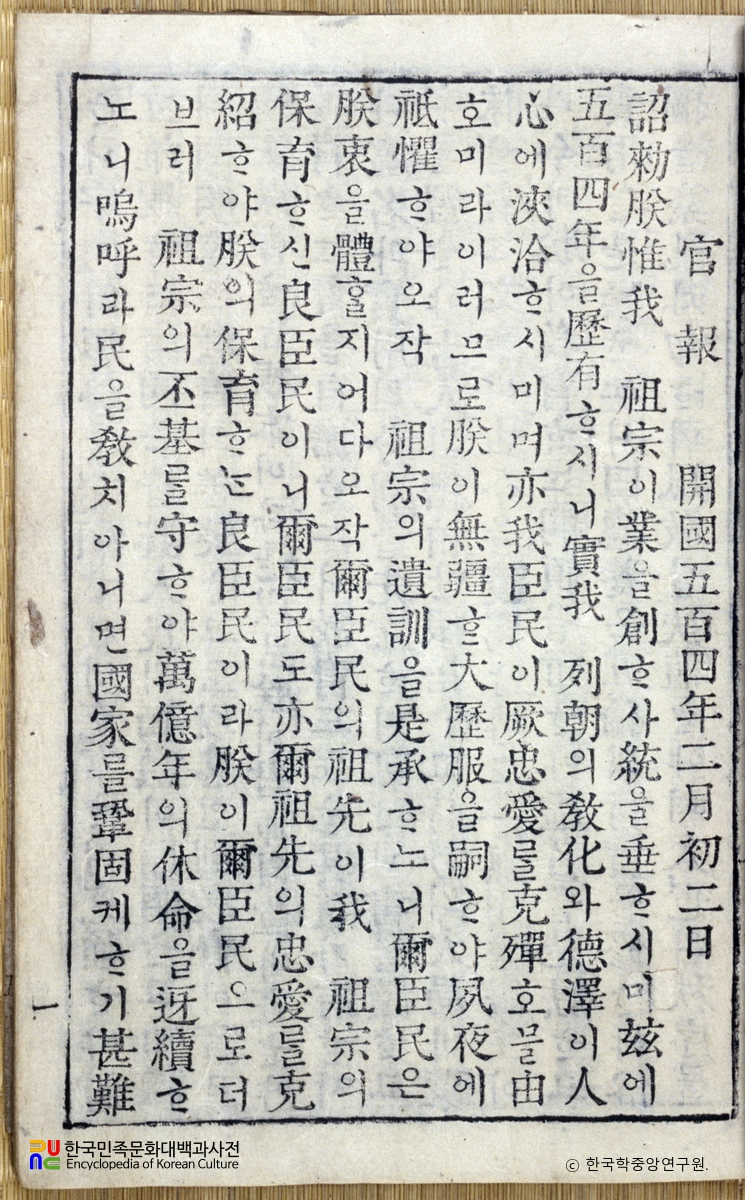 官報 開國五百四年二月初二日
詔勑朕惟我 祖宗이業을創ᄒᆞ사統을垂ᄒᆞ시미玆에
五百四年을歷有ᄒᆞ시니實我 列朝의敎化와德澤이人
心에浹洽ᄒᆞ시미며亦我臣民이厥忠愛를克殫호믈由
호미라이러므로朕이無疆ᄒᆞᆫ大歷服을嗣ᄒᆞ야夙夜에
祗懼ᄒᆞ야오작 祖宗의遺訓을是承ᄒᆞ노니爾臣民은
朕衷을體ᄒᆞᆯ지어다오작爾臣民의祖先이我 祖宗의
保育ᄒᆞ신良臣民이니爾臣民도亦爾祖先의忠愛를克
紹ᄒᆞ야朕의保育ᄒᆞᄂᆞᆫ良臣民이라朕이爾臣民으로더
브러 祖宗의丕基를守ᄒᆞ야萬億年의休命을迓續ᄒᆞ
노니嗚呼라民을敎치아니면國家를鞏固케ᄒᆞ기甚難
一
한국민족문화대백과사전
Encyclopedia of Korean Culture
© 한국학중앙연구원.